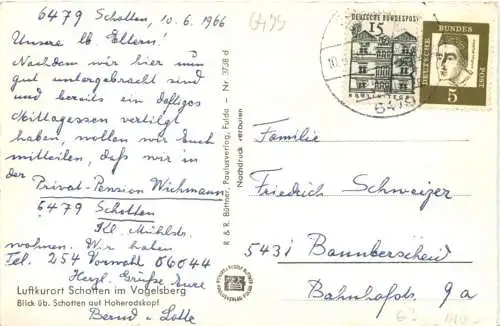 6479 Schotten, 10.6.1966
Unsere lb. Eltern!
Nachdem wir hier nun
gut untergebracht sind
und bereits ein deftiges
Mittagessen vertilgt
haben, wollen wir Euch
mitteilen, daß wir in
der Privat-Pension Wichmann
6479 Schotten
Kl. Mühlstr.
wohnen. Wir haben
Tel. 254 Vorwahl 06044
Herzl. Grüße Eure
Bernd u. Lotte
Luftkurort Schotten im Vogelsberg
Blick üb. Schotten auf Hoherodskopf
R & R. Büttner, Paulusverlag, Fulda - Nr. 3728 d
Nachdruck verboten
6479
DEUTSCHE BUNDESPOST
15
DEUTSCHE BUNDES POST
5
6479
Familie
Friedrich Schweizer
5431 Bannberscheid
Bahnhofstr. 9a